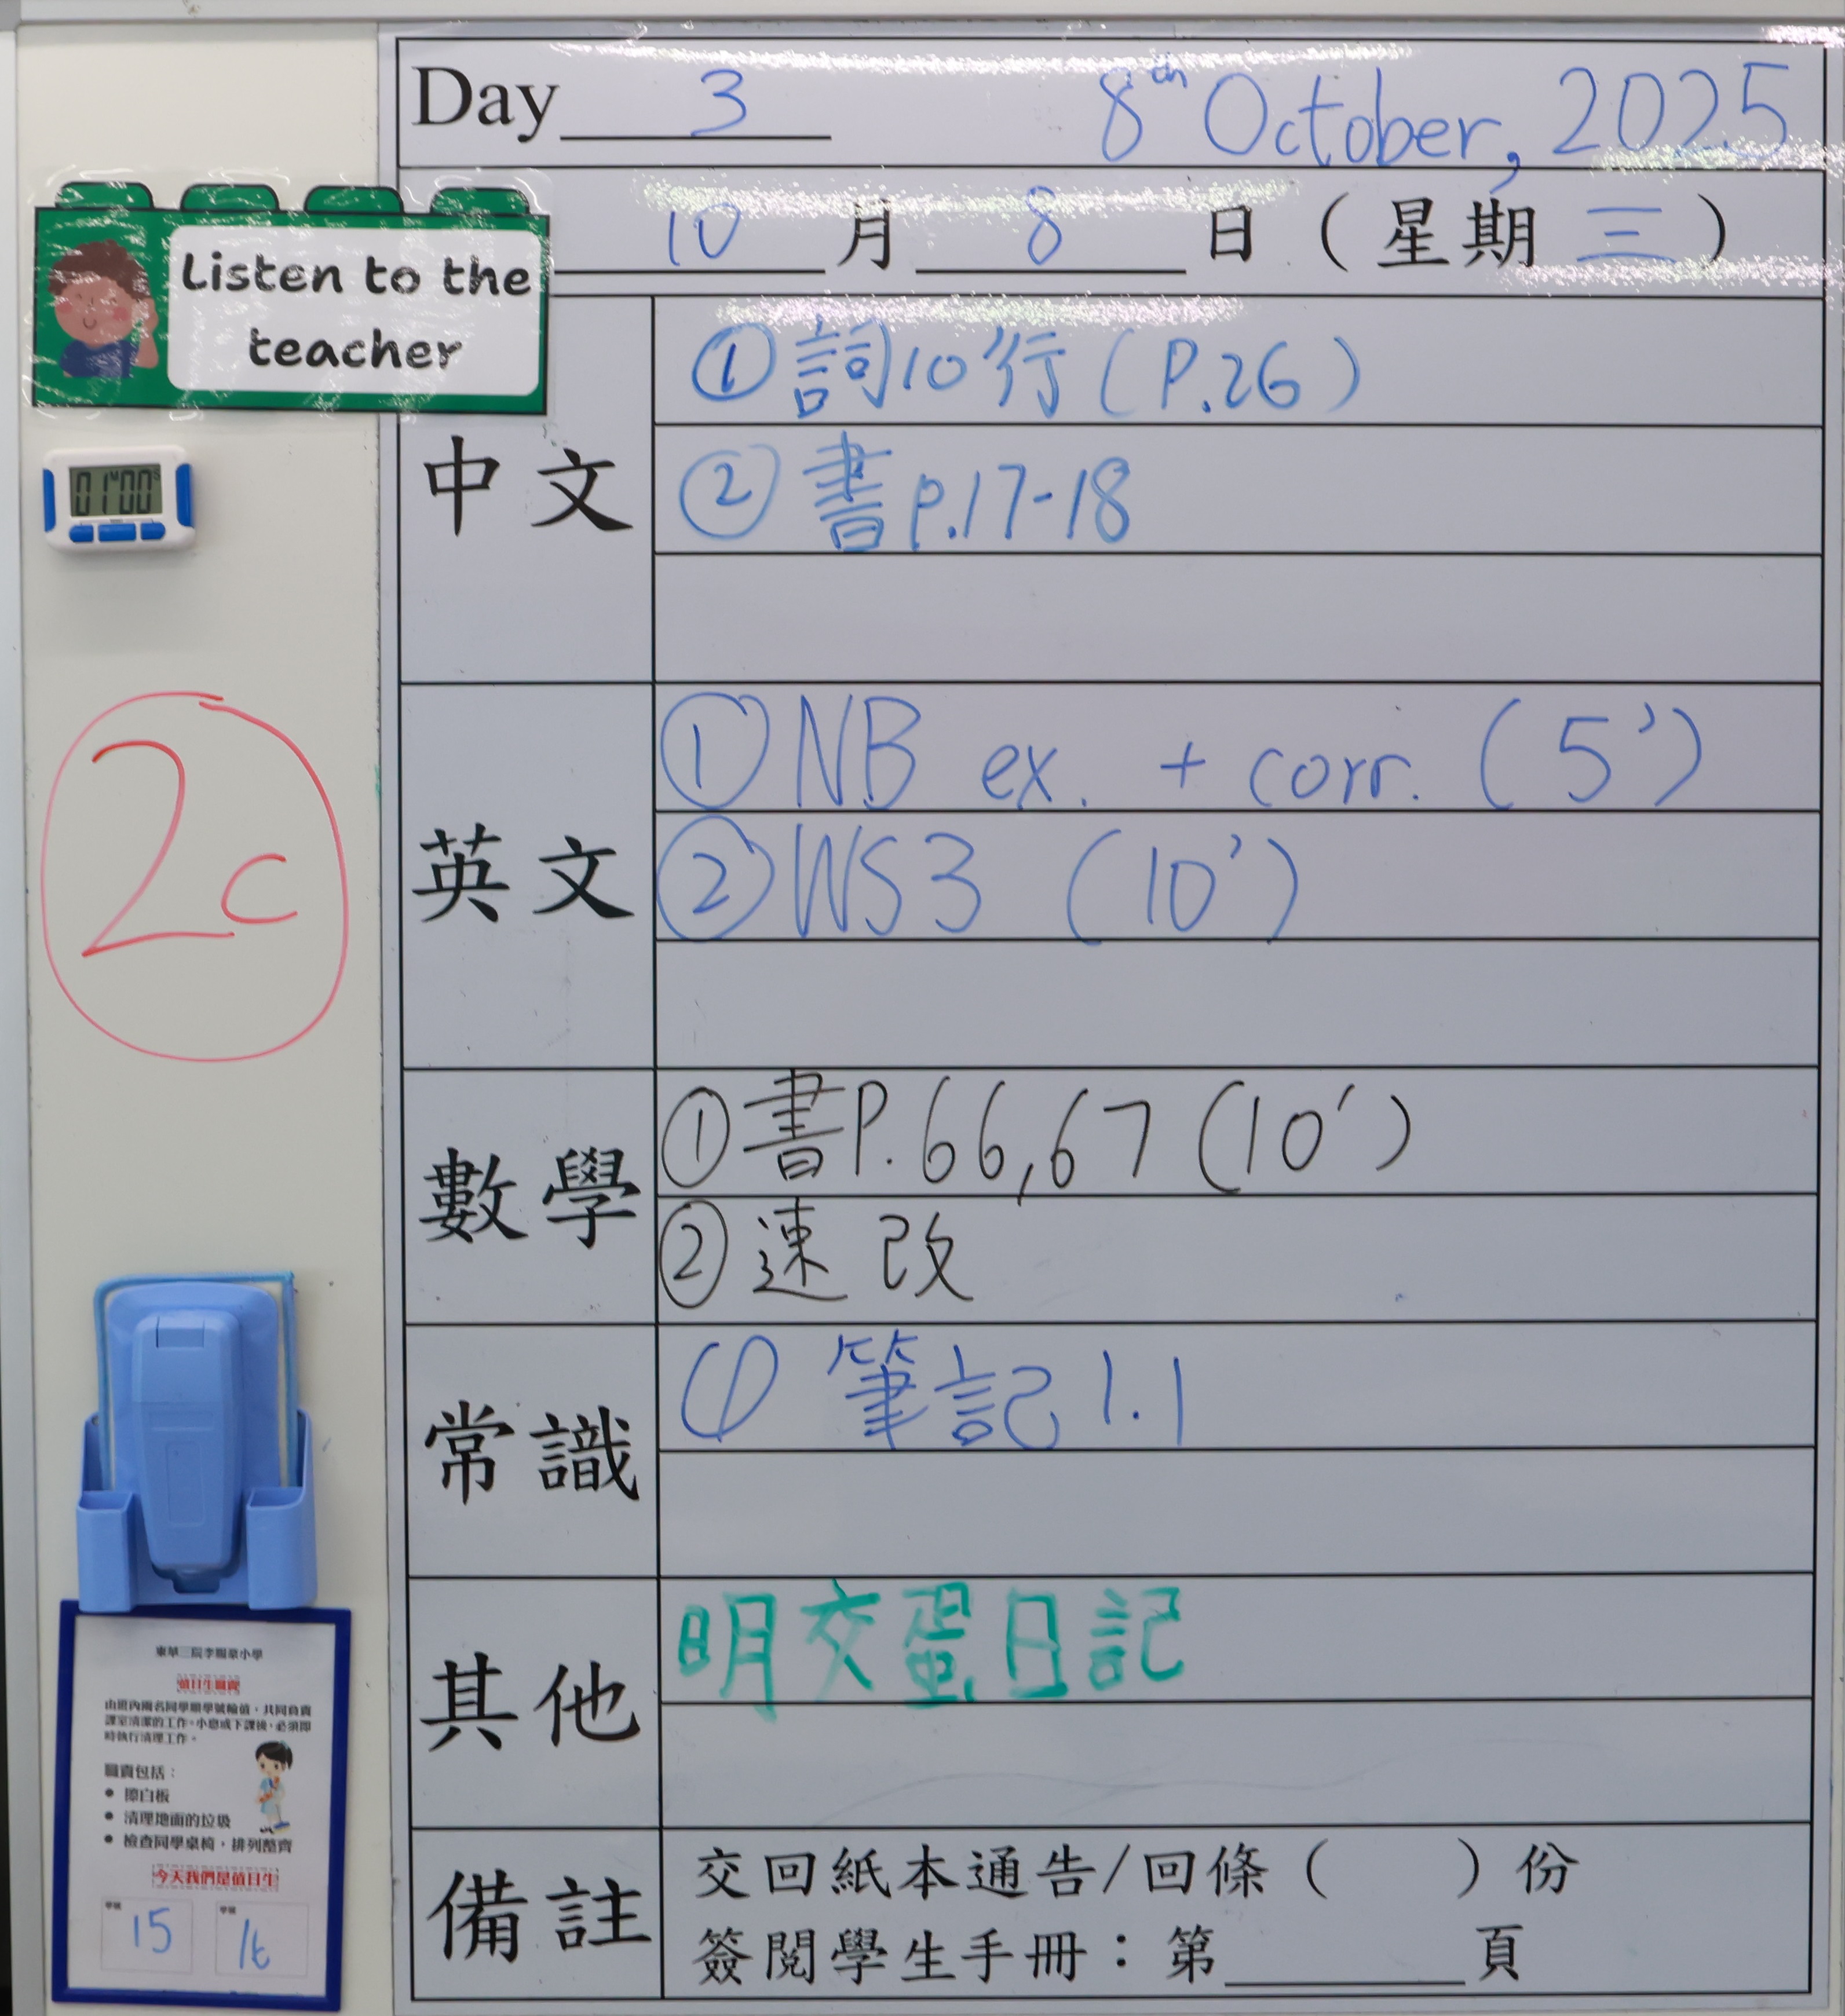 Day 3 8th October, 2025
10 月 8 日 (星期 三)
Listen to the
teacher
中文
① 詞10行 (P.26)
② 書 p.17-18
01M00S
2c
英文
① NB ex. + corr. (5')
② WS3 (10')
數學
① 書P.66,67 (10')
② 速改
常識
① 筆記 1.1
其他
明交蛋日記
備註
交回紙本通告/回條 ( ) 份
簽閱學生手冊：第 頁
東華三院李賜豪小學
值日生職責
由班內兩名同學順學號輪值，共同負責
課室清潔的工作。小息或下課後，必須即
時執行清理工作。
職責包括：
● 擦白板
● 清理地面的垃圾
● 檢查同學桌椅，排列整齊
今天我們是值日生
學號 學號
15 16